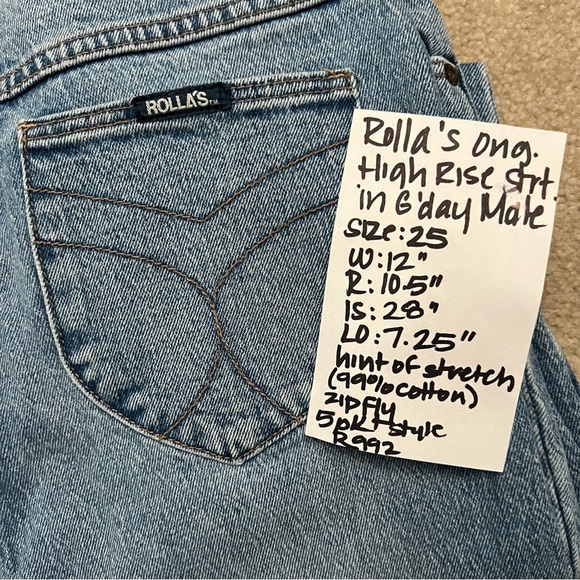 ROLLA'S TM
Rolla's Ong.
High Rise Strt.
in G'day Mate
Size: 25
W: 12"
R: 10.5"
IS: 28"
LO: 7.25"
hint of stretch
(99% cotton)
zip fly
5 pkt style
R992